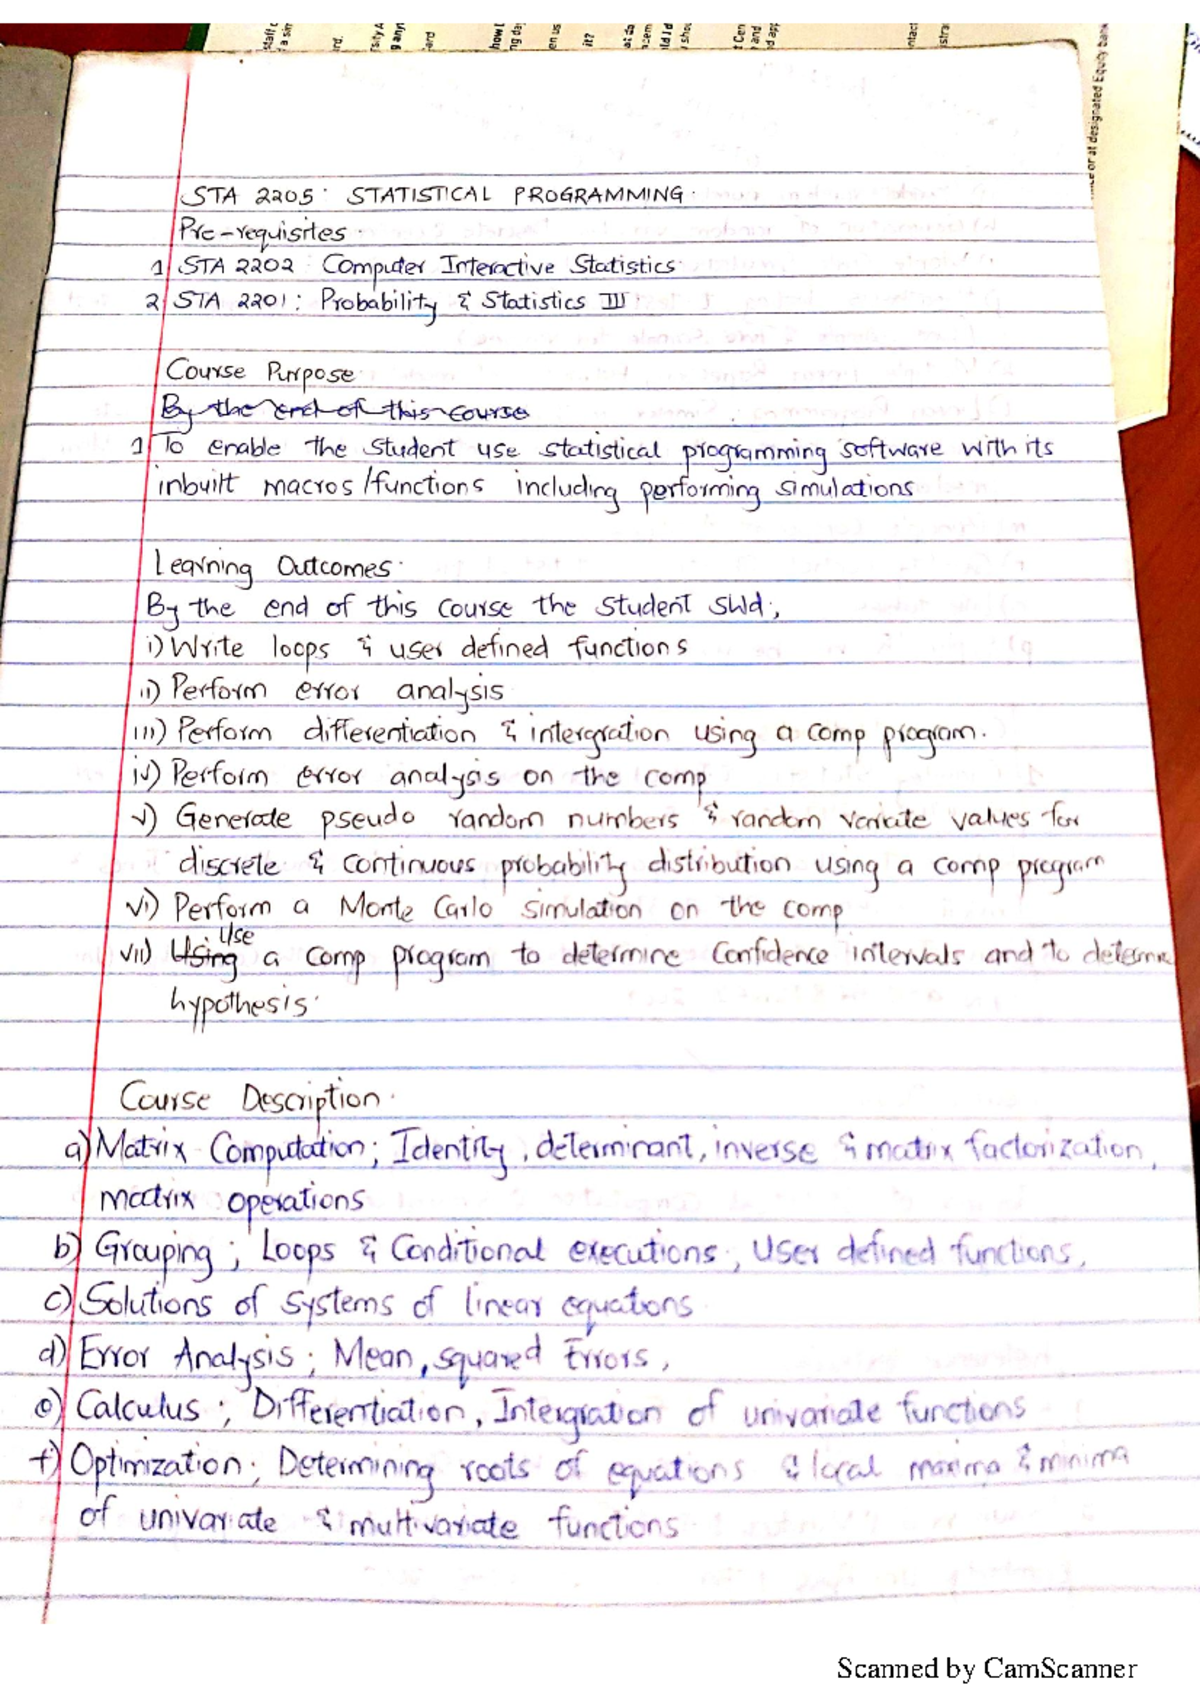 STA 2205: STATISTICAL PROGRAMMING.
Pre-requisites.
1 STA 2202: Computer Interactive Statistics.
2 STA 2201: Probability & Statistics III
Course Purpose.
By the end of this course
1 To enable the student use statistical programming software with its
inbuilt macros/functions including performing simulations
Learning Outcomes.
By the end of this course the student shld;
i) Write loops & user defined functions
ii) Perform error analysis
iii) Perform differentiation & intergration using a comp program.
iv) Perform error analysis on the comp
v) Generate pseudo random numbers & random variate values for
discrete & continuous probability distribution using a comp program
vi) Perform a Monte Carlo simulation on the comp
Use
vii) Using a comp program to determine confidence intervals and to determine
hypothesis.
Course Description.
a) Matrix Computation; Identity, determinant, inverse & matrix factorization,
matrix operations
b) Grouping; Loops & Conditional executions, User defined functions,
c) Solutions of systems of linear equations
d) Error Analysis; Mean, squared Errors,
e) Calculus; Differentiation, Intergration of univariate functions
f) Optimization; Determining roots of equations & local maxima & minima
of univariate & multivariate functions
Scanned by CamScanner